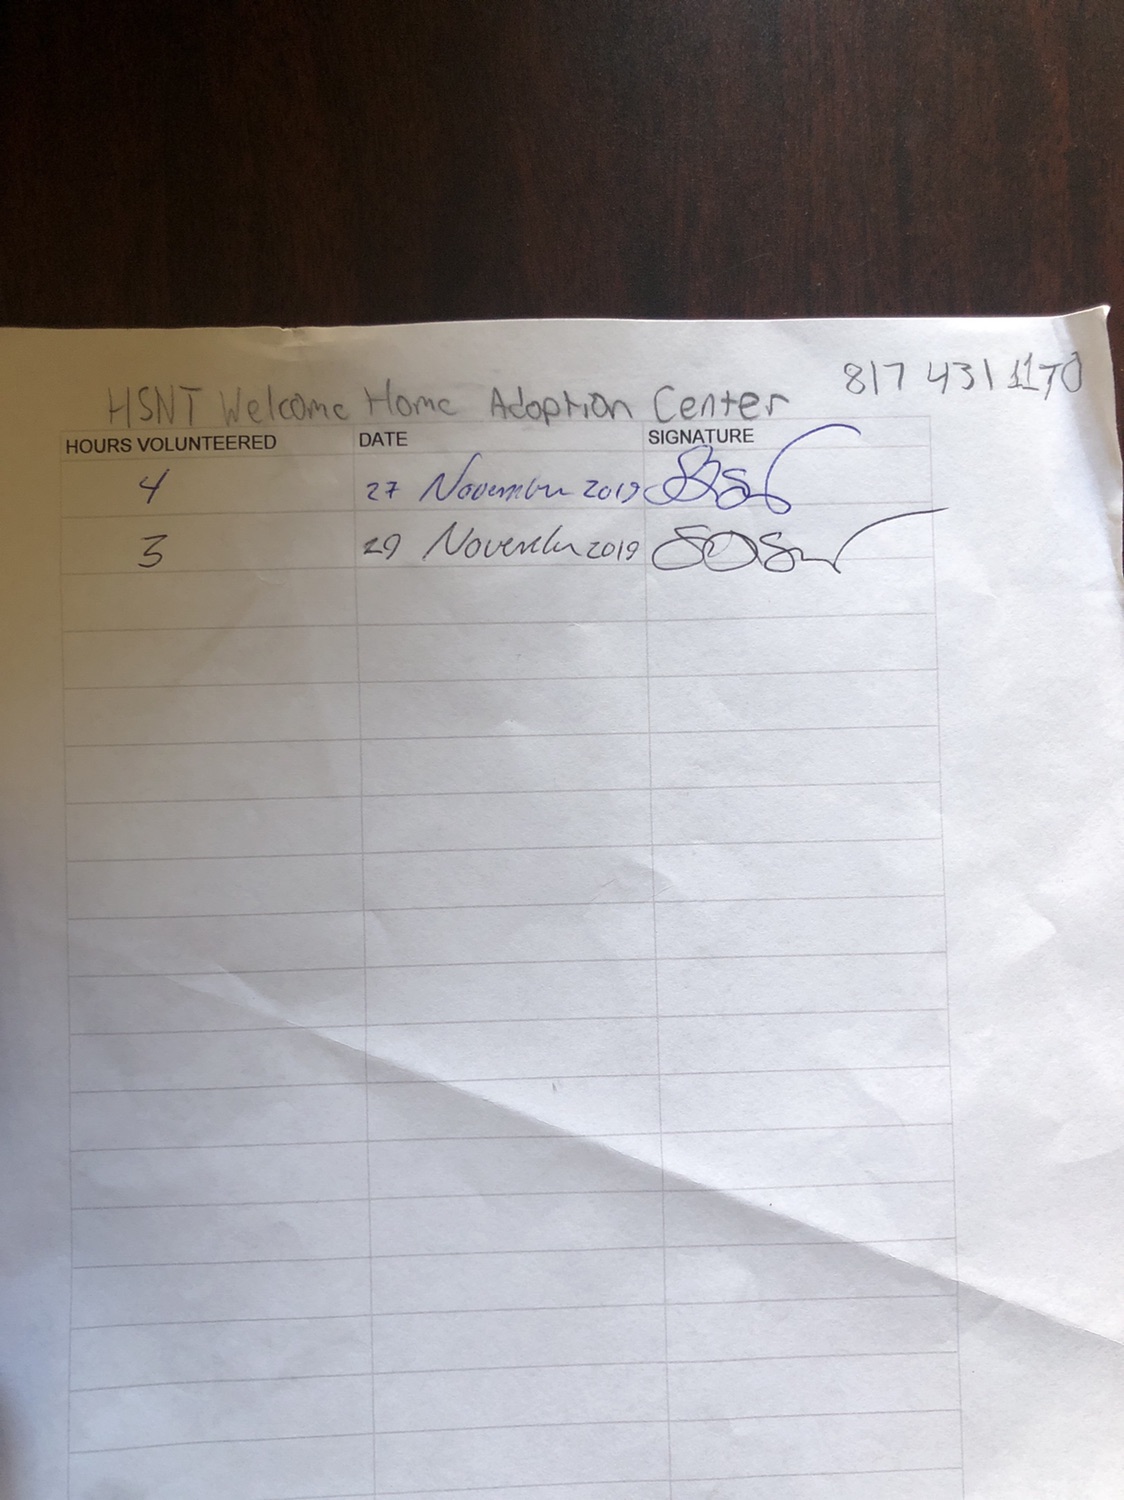 HSNT Welcome Home Adoption Center 817 431 1170
HOURS VOLUNTEERED DATE SIGNATURE
4 27 November 2019
3 29 November 2019